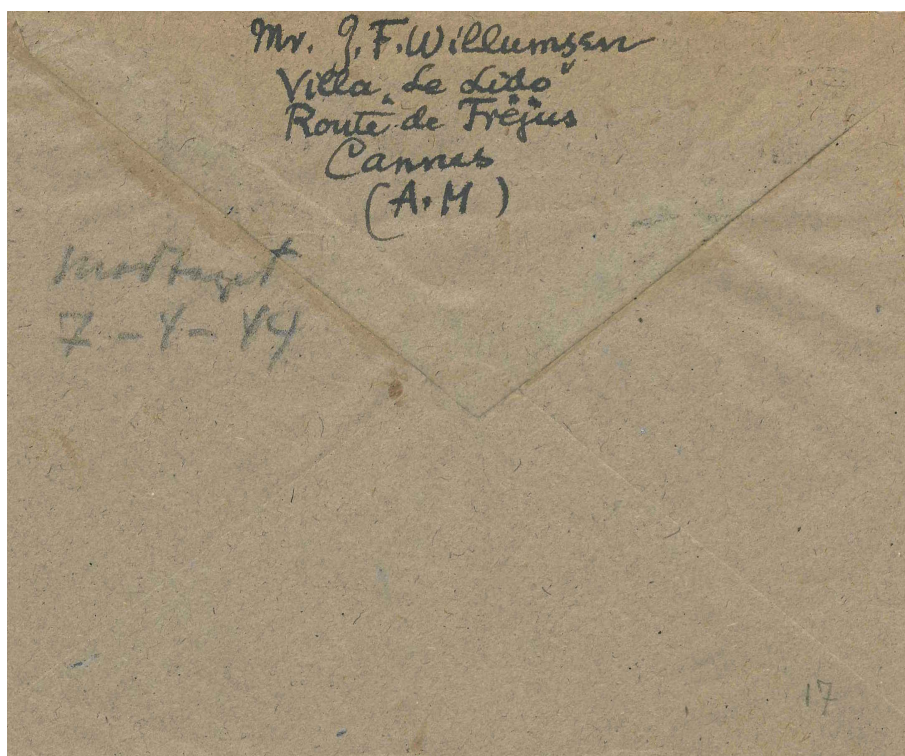 Mr. J. F. Willumsen
Villa „Le Lido”
Route de Fréjus
Cannes
(A.M)
Modtaget
7-4-44
17